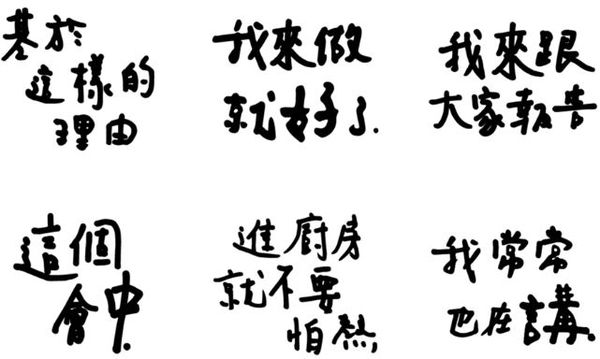 基於
這樣的
理由
我來做
就好了.
我來跟
大家報告
這個
會中.
進廚房
就不要
怕熱,
我常常
也在言講.